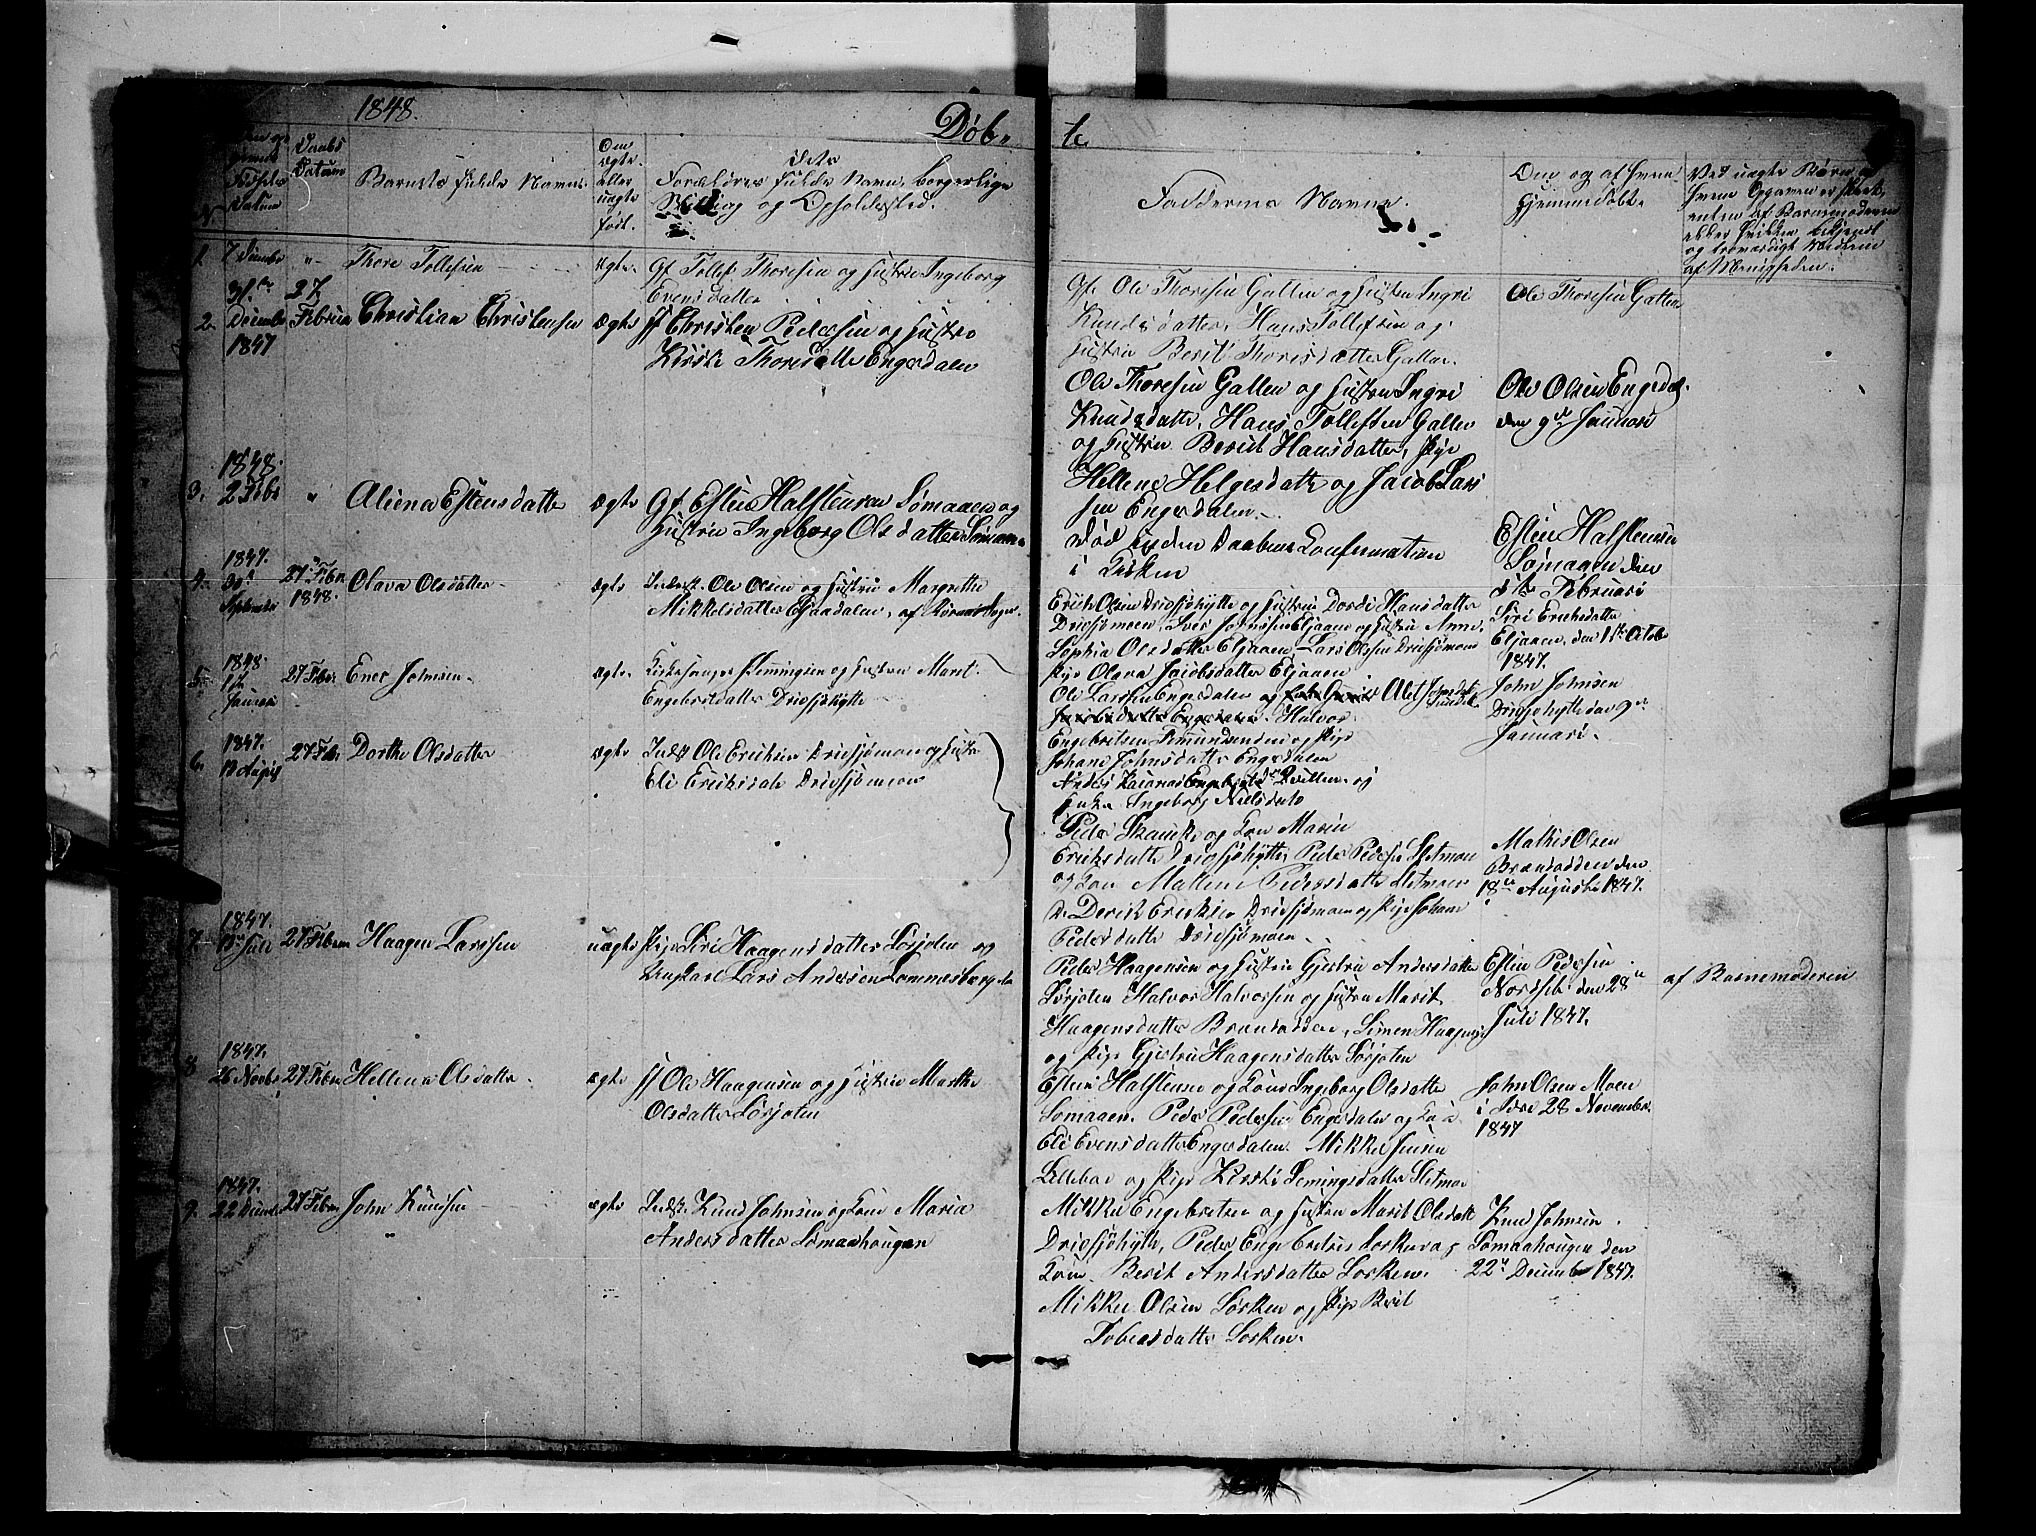 1848.
Døb-
te
Daabs
Datum
Barnets fulde Navn.
Om
ægte
eller
uægte
født.
Forældres fulde Navn, borgerlige
Stilling og Opholdssted.
Faddernes Navne.
Om og af hvem
hjemmedøbt.
Ved uægte Børn
hvem Opgaven er skeet,
enten af Barnemoderen
eller hvilken bekjendt
og troværdigt Medlem
af Menigheden.
1. 7 Decmbr " Thore Tollefsen ægte. Gf Tollef Thoresen og Hustru Ingeborg
Evensdatter
Gf. Ole Thoresen Gallen og Hustru Ingri
Knudsdatter, Hans Tollefsen og
Hustru Berit Thoresdatter Gallen.
Ole Thoresen Gallen
2. 31. Decmbr 1847 27 Februar Christian Christensen ægte ff Christen Pedersen og Hustru
Kirsti Thoresdatter Engerdalen
Ole Thoresen Gallen og Hustru Ingri
Knudsdatter, Hans Tollefsen Gallen
og Hustru Berit Hansdatter, Pige
Hellene Helgesdatter og Jacob Lars
sen Engerdalen
Ole Olsen Engerdal
den 9de Januari
1848.
3. 2 Febr " Aliena Estensdatter ægte Gf. Esten Halstensen Sømaaen og
Hustru Ingeborg Olsdatter Sømaaen
Død inden Daabens Confirmation
i Kirken
Esten Halstensen
Sømaaen den
Februari
1847.
4. 30 September 27 Febr 1848. Olava Olsdatter ægte Inderst. Ole Olsen og Hustru Margrethe
Mikkelsdatter Elgaadalen, af Røraas Sogn.
Erich Olsen Drevsjøhytte og Hustru Dordi Hansdatter
Drevsjømoen, Iver Johnsen Eljaaen og Hustru Anne
Sophia Olsdatter Eljaaen, Lars Olsen Drevsjømoen
Pige Olava Jacobsdatter Eljaaen
Siri Erichsdatter
Eljaaen, den 1ste Octobr
1847.
1848.
5. Januar 27 Febr. Ener Johnsen ægte. Kirkesanger Flemmingsen og Hustru Maret
Engebretsdatter Drevsjøhytte
Ole Larsen Engerdalen og Alet Johnsdatter
Halvor
Engebretsen Femundsenden og Pige
Johane Johnsdatter Engerdalen
John Johnsen
Drevsjøhytte den 9de
Januari.
1847.
6. 27 Febr Dorthe Olsdatter ægte Indst Ole Ericksen Drevsjømoen og Hustru
Eli Ericksdatter Drevsjømoen
Enke Ingeborg Nielsdatter
Peder Skancke og Kone Maren
Ericksdatter Drevsjøhytte, Peder Pedersen Sletmoen
og Kone Mallene Pedersdatter Sletmoen
Ericksen Drevsjømoen og Pige Johane
Pedersdatter Drevsjømoen
Mathis Olsen
Brændodden den
18de Augusti 1847.
1847.
7. Juli 27 Februar Haagen Larsen uægte Pige Siri Haagensdatter Sørjoten og
Ungkarl Lars Andersen
Peder Haagensen og Hustru Gjertru Andersdatter
Sørjoten Halvor Halvorsen og Hustru Marit
Haagensdatter Brændodden, Simen Haagensen
og Pige Gjertru Haagensdatter Sørjoten
Esten Pedersen
Nordset den 28de
Juli 1847.
af Barnemoderen
1847.
8 26 Novbr 27 Febr Hellena Olsdatter ægte ff Ole Haagensen og Hustru Marthe
Olsdatter Sørjoten
Esten Halstensen og Kone Ingeborg Olsdatter
Sømaaen. Peder Pedersen Engerdalen og Kone
Eli Evensdatter Engerdalen. Mikkel Jensen
Lillebo og Pige Kirsti Femingsdatter Sletmoen
John Olsen Moen
i Idre 28 November
1847
1847.
9. 22 Decmbr 27 Febr John Knudsen ægte Indst. Knud Johnsen og Kone Maria
Andersdatter Sømaahougen
Mikkel Engebretsen og Hustru Marit Olsdatter
Drevsjøhytte, Peder Engebretsen Sorken og
Kone Berit Andersdatter Sorken.
Mikkel Olsen Sorken og Pige Berit
Tobiasdatter Sorken.
Knud Johnsen
Sømaahougen den
22de Decembr 1847.